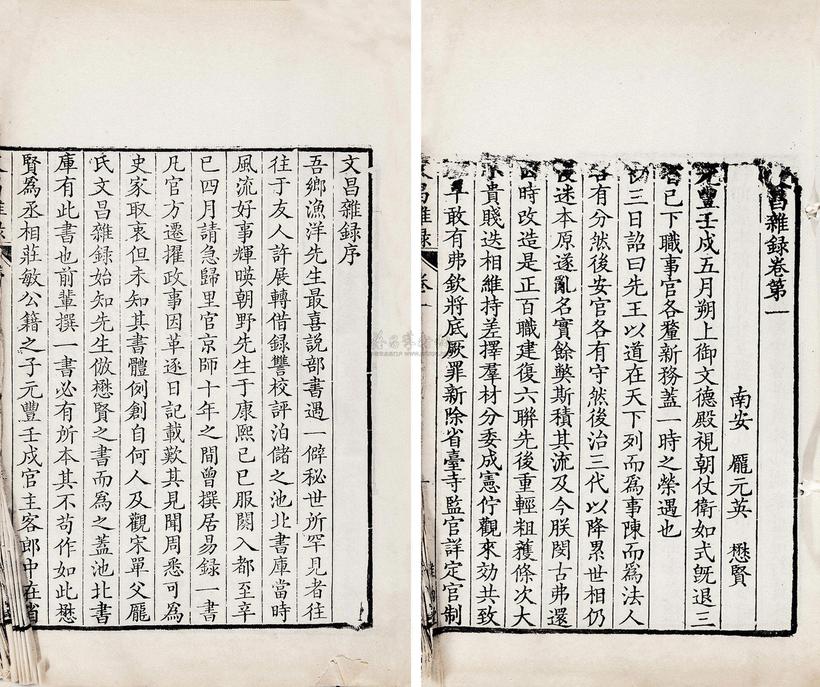 文昌雜錄序
吾鄉漁洋先生最喜說部書遇一僻秘世所罕見者往
往于友人許展轉借録讐校評泊儲之池北書庫當時
風流好事輝暎朝野先生于康熙己巳服闋入都至辛
巳四月請急歸里官京師十年之間曾撰居易録一書
凡官方遷擢政事因革逐日記載歎其見聞周悉可為
史家取衷但未知其書體例創自何人及觀宋單父龎
氏文昌雜録始知先生倣懋賢之書而為之蓋池北書
庫有此書也前輩撰一書必有所本其不苟作如此懋
賢為丞相莊敏公籍之子元豐壬戌官主客郎中在省
昌雜録卷第一
南安 龎元英 懋賢
元豐壬戌五月朔上御文德殿視朝仗衛如式旣退三
省已下職事官各釐新務蓋一時之榮遇也
三日詔曰先王以道在天下列而為事陳而為法人
各有分然後安官各有守然後治三代以降累世相仍
迷本原遂亂名實餘獘斯積其流及今朕閔古弗還
時改造是正百職建復六聯先後重輕粗獲條次大
小貴賤迭相維持差擇羣材分委成憲佇觀來効共致
丕平敢有弗欽將底厥罪新除省臺寺監官詳定官制
昌雜録 卷一